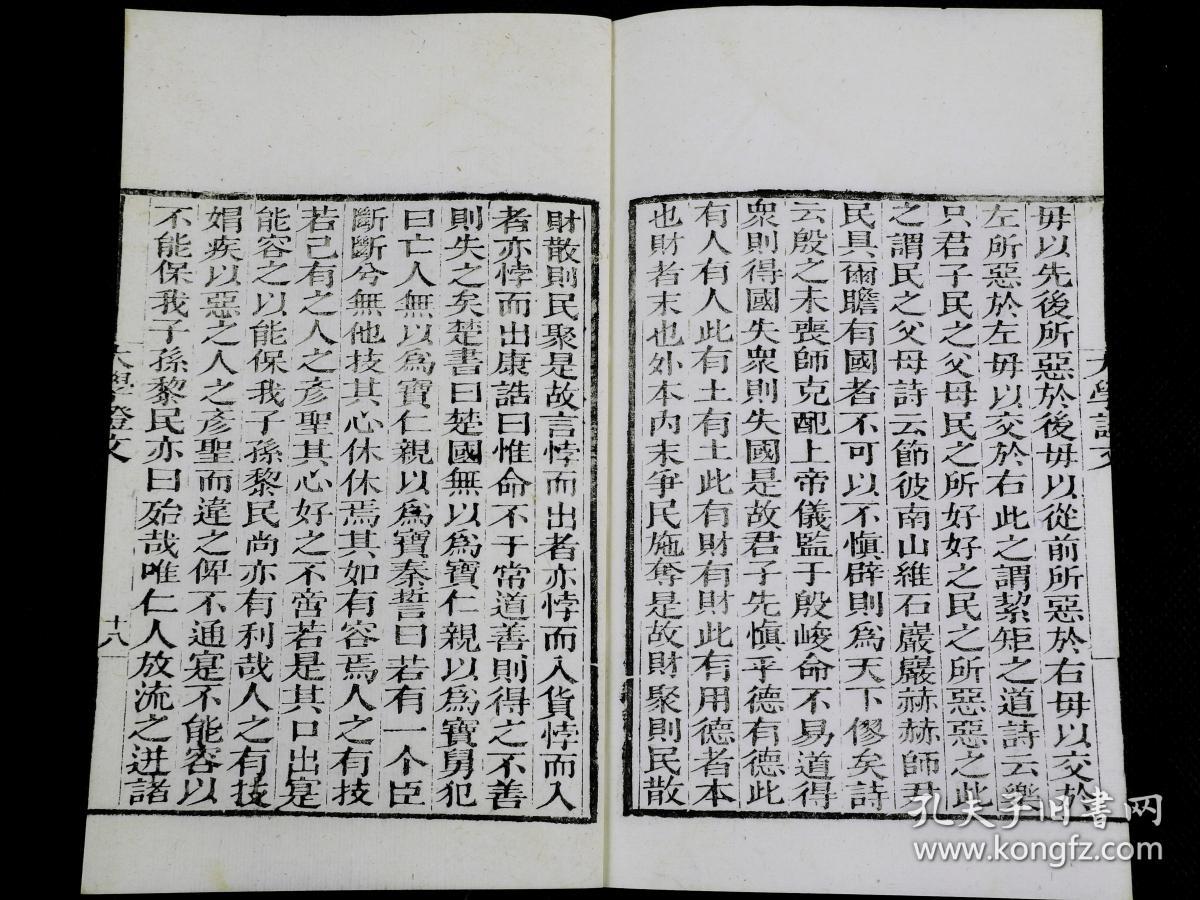 大學證文
毋以先後所惡於後毋以從前所惡於右毋以交於
左所惡於左毋以交於右此之謂絜矩之道詩云樂
只君子民之父母民之所好好之民之所惡惡之此
之謂民之父母詩云節彼南山維石巖巖赫赫師尹
民具爾瞻有國者不可以不愼辟則爲天下僇矣詩
云殷之未喪師克配上帝儀監于殷峻命不易道得
衆則得國失衆則失國是故君子先愼乎德有德此
有人有人此有土有土此有財有財此有用德者本
也財者末也外本内末爭民施奪是故財聚則民散
財散則民聚是故言悖而出者亦悖而入貨悖而入
者亦悖而出康誥曰惟命不于常道善則得之不善
則失之矣楚書曰楚國無以爲寶仁親以爲寶舅犯
曰亡人無以爲寶仁親以爲寶秦誓曰若有一个臣
斷斷兮無他技其心休休焉其如有容焉人之有技
若己有之人之彥聖其心好之不啻若是其口出寔
能容之以能保我子孫黎民尚亦有利哉人之有技
媢疾以惡之人之彥聖而違之俾不通寔不能容以
不能保我子孫黎民亦曰殆哉唯仁人放流之迸諸
大學證文
十八
孔夫子旧书网
www.kongfz.com